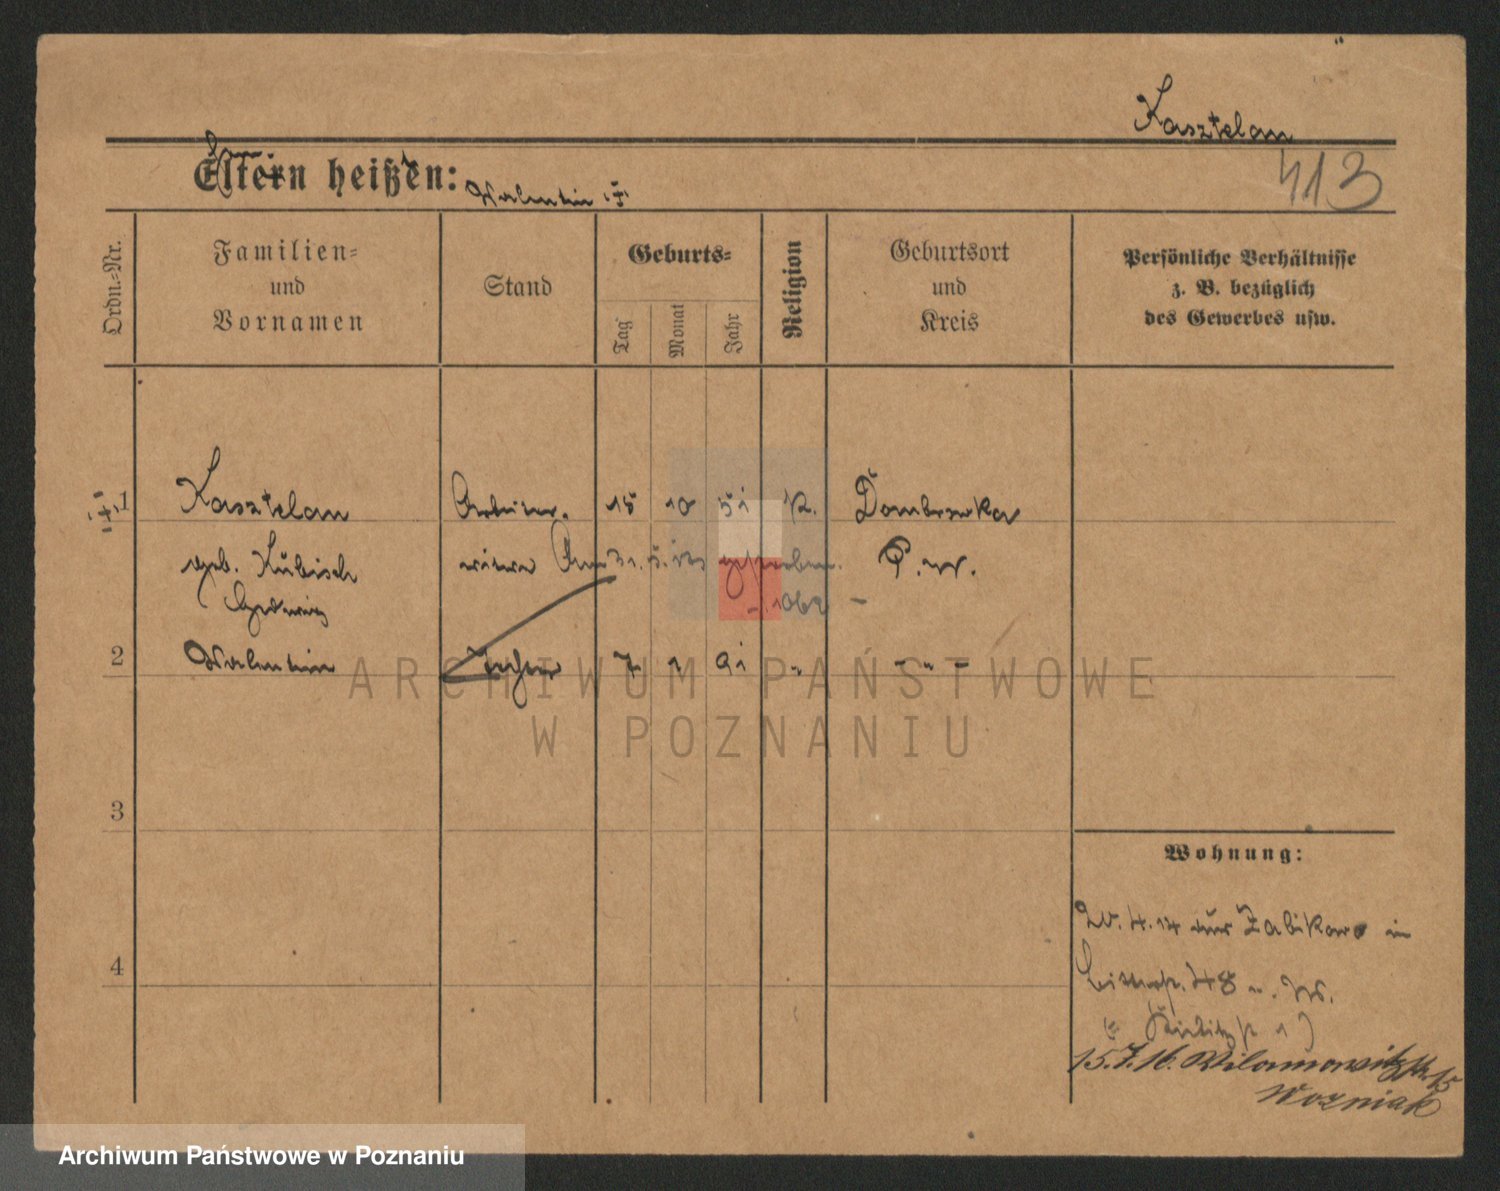 Kasztelan
Eltern heißen:
Valentin †
413
Ordn.-Nr.
Familien-
und
Vornamen
Stand
Geburts-
Tag
Monat
Jahr
Religion
Geburtsort
und
Kreis
Persönliche Verhältnisse
z. B. bezüglich
des Gewerbes usw.
1 Kasztelan Arbeiter- 15 10 51 K. Dombrowka
geb. Kubisch witwe gestorben. P. W.
Hedwig
2 Valentin 7 1 91 " - " -
ARCHIWUM PAŃSTWOWE
W POZNANIU
3
4
Wohnung:
20.4.14 aus Zabikowo in
48
15.7.16. Wilamowitzstr. 15
Wozniak
Archiwum Państwowe w Poznaniu